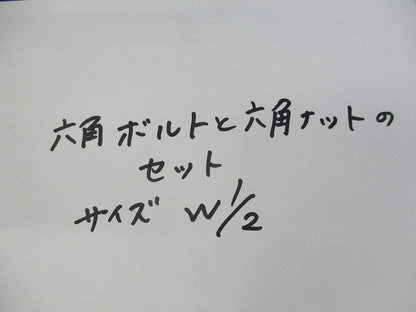 六角ボルトと六角ナットの
セット
サイズ W1/2